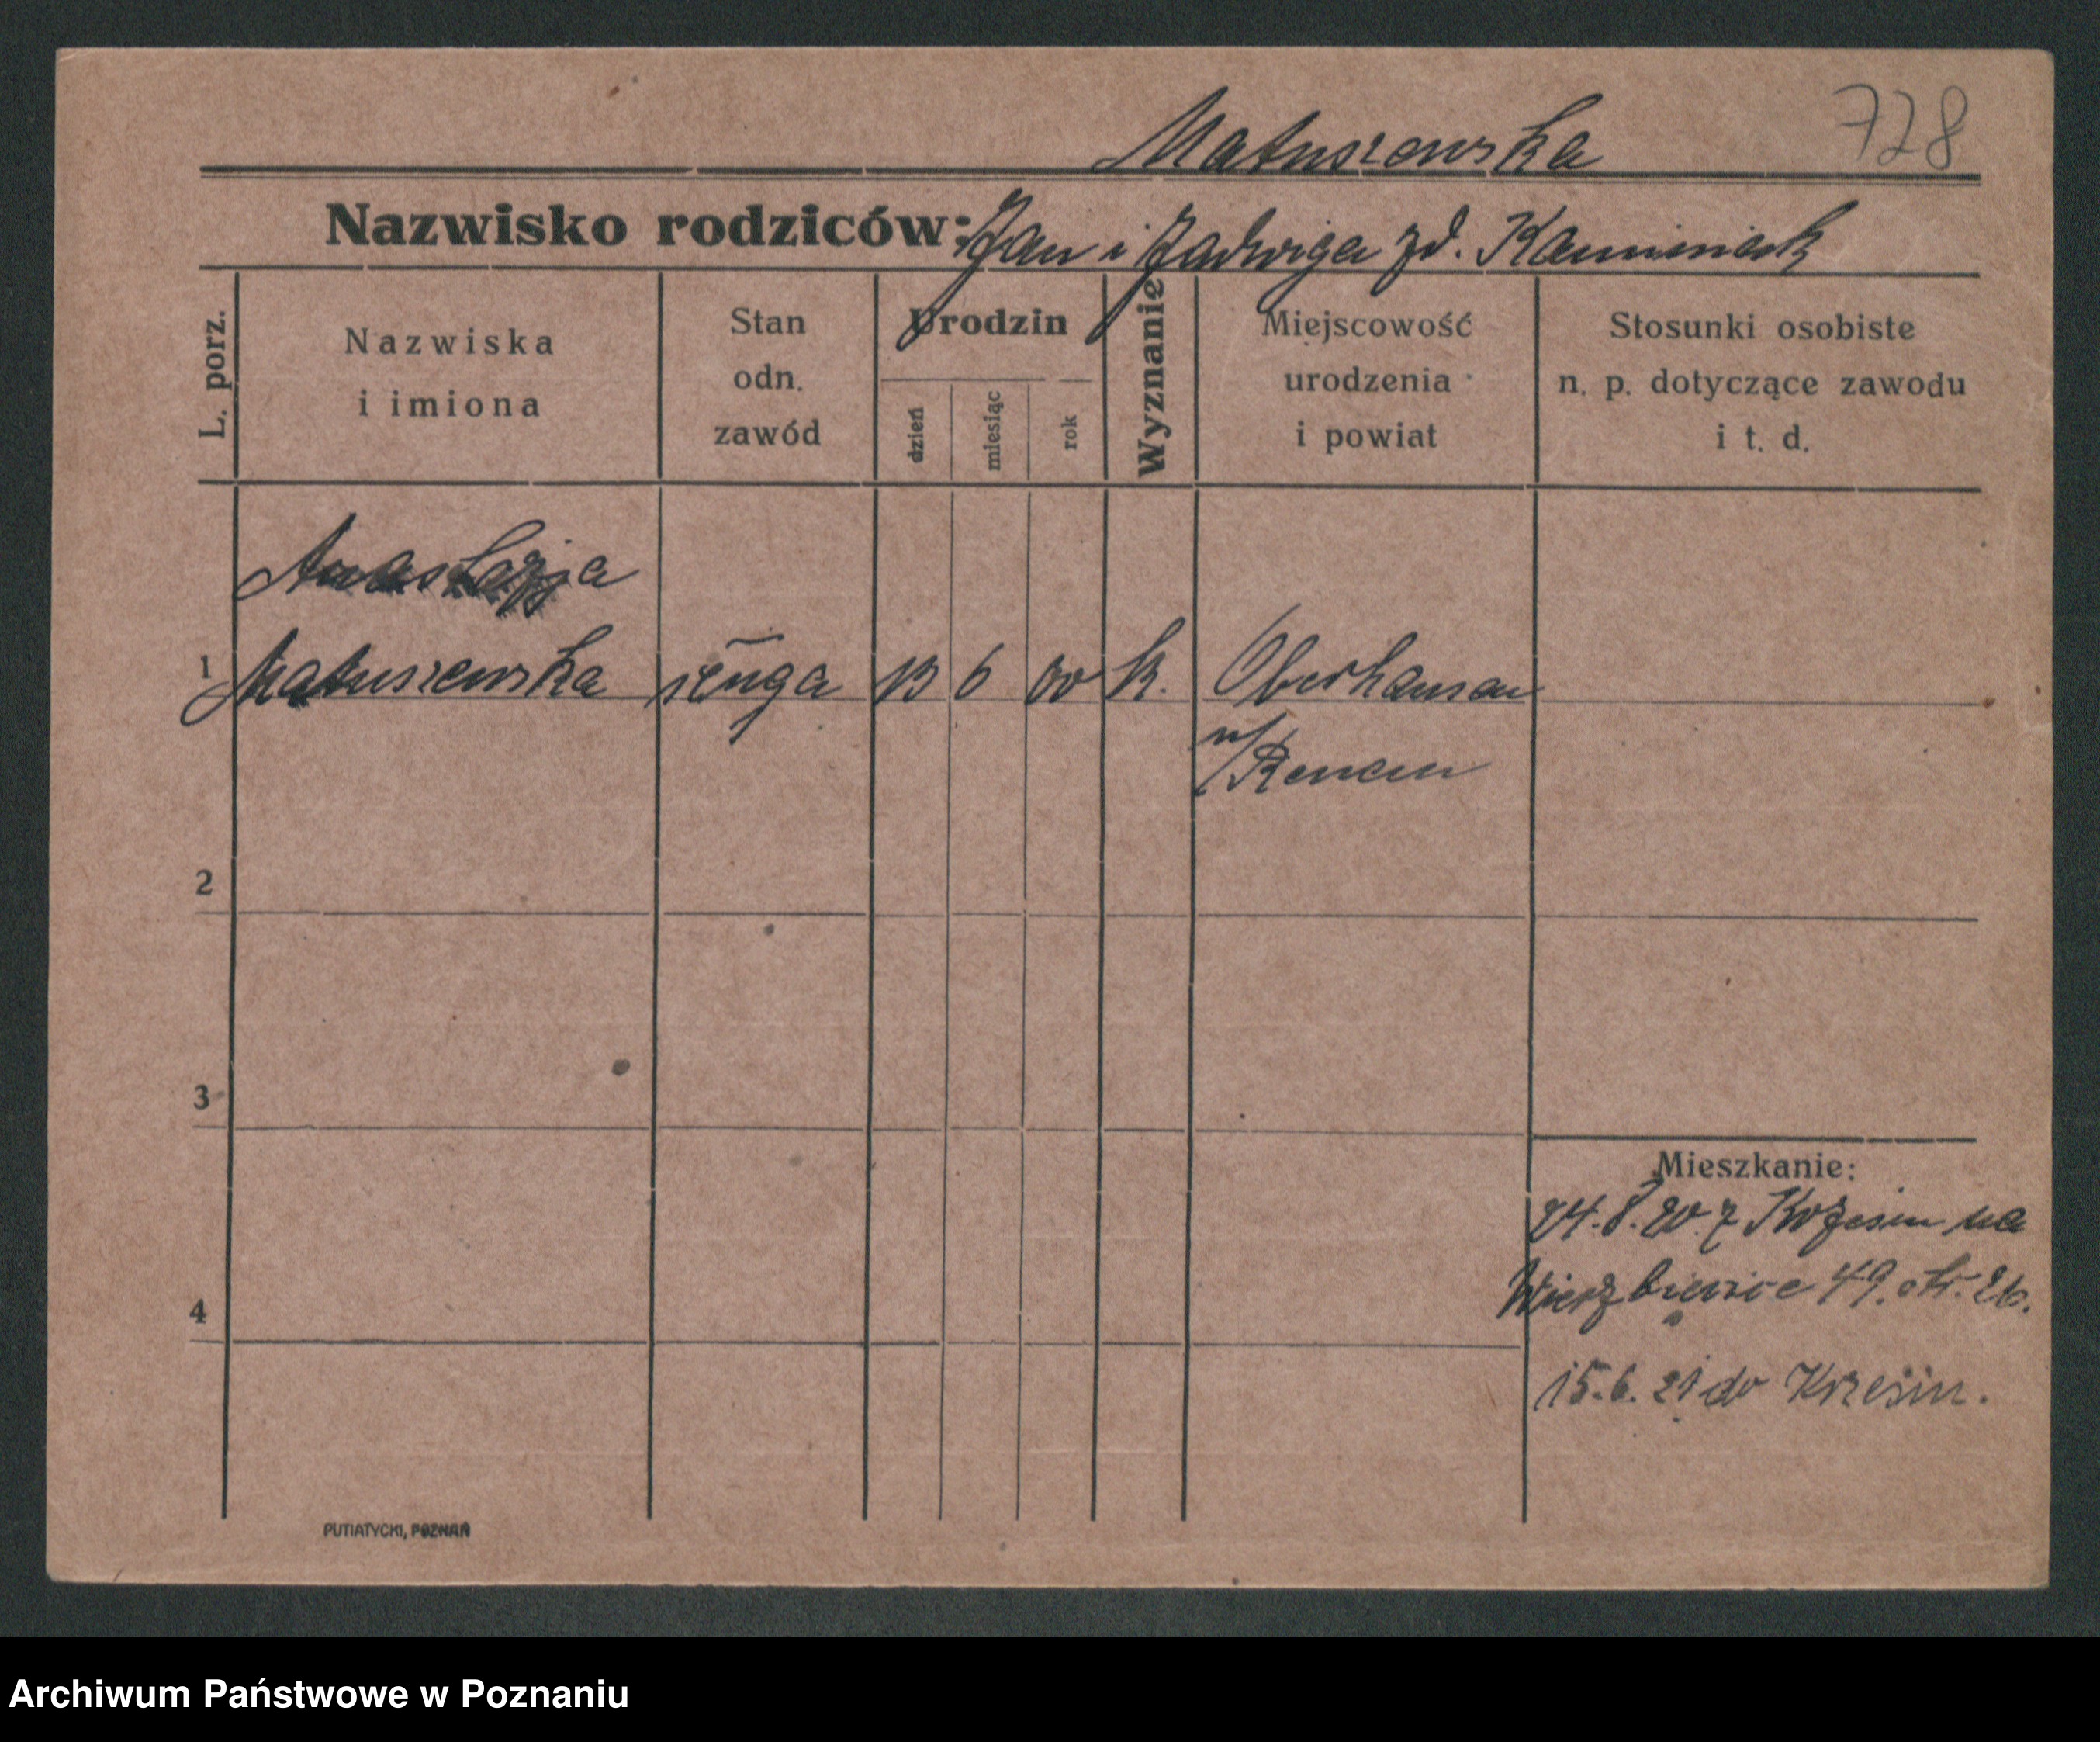 Matuszewska 728
Nazwisko rodziców: Jan i Jadwiga zd. Kaminiak
L. porz.
Nazwiska i imiona
Stan odn. zawód
Urodzin
dzień miesiąc rok
Wyznanie
Miejscowość urodzenia i powiat
Stosunki osobiste n. p. dotyczące zawodu i t. d.
Anastazja
1 Matuszewska 6 00 k. Oberhausen
n/
2
3
Mieszkanie:
24. 8. 20. z na
Wierzbięcice 49. 26.
4
15. 6. 21 do Krzesin.
PUTIATYCKI, POZNAŃ
Archiwum Państwowe w Poznaniu